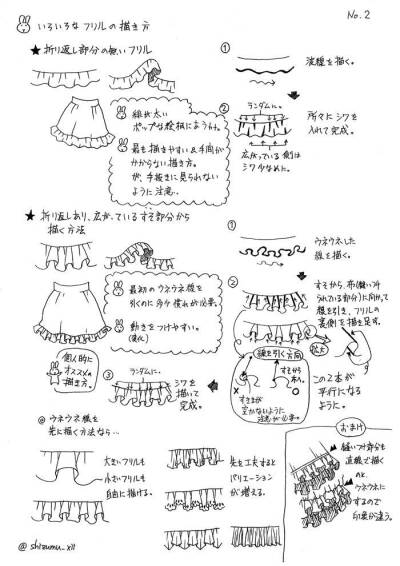 No.2
いろいろなフリルの描き方
★折り返し部分の無いフリル
①
波線を描く。
線が太い
ポップな絵柄にように。
最も描きやすい&手間が
かからない描き方。
が、手抜きに見られない
ように注意。
②
ランダムに。
所々にシワを
入れて完成。
広がっている側は
シワ少なめに。
★折り返しあり、広がっているすそ部分から
描く方法
①
ウネウネした
線を描く。
最初のウネウネ線を
引くのに多少慣れが必要。
動きをつけやすい。
個人的に
オススメの
描き方。
②
すそから、布(縫いつけ
られている部分)に向かって
線を引き、フリルの
裏側を描き足す。
拡大
線を引く方向
すそから
本へ。
すきまが
空かないように
注意が必要。
この2本が
平行になる
ように。
③
ランダムに。
シワを
描いて
完成。
◎ウネウネ線を
先に描く方法なら…
大きいフリルも
小さいフリルも
自由に描ける。
先を工夫すると
バリエーション
が増える。
おまけ
縫いつけ部分も
直線で描く
のと、
ウネウネに
するので
印象が違う。
@shizumu_xii